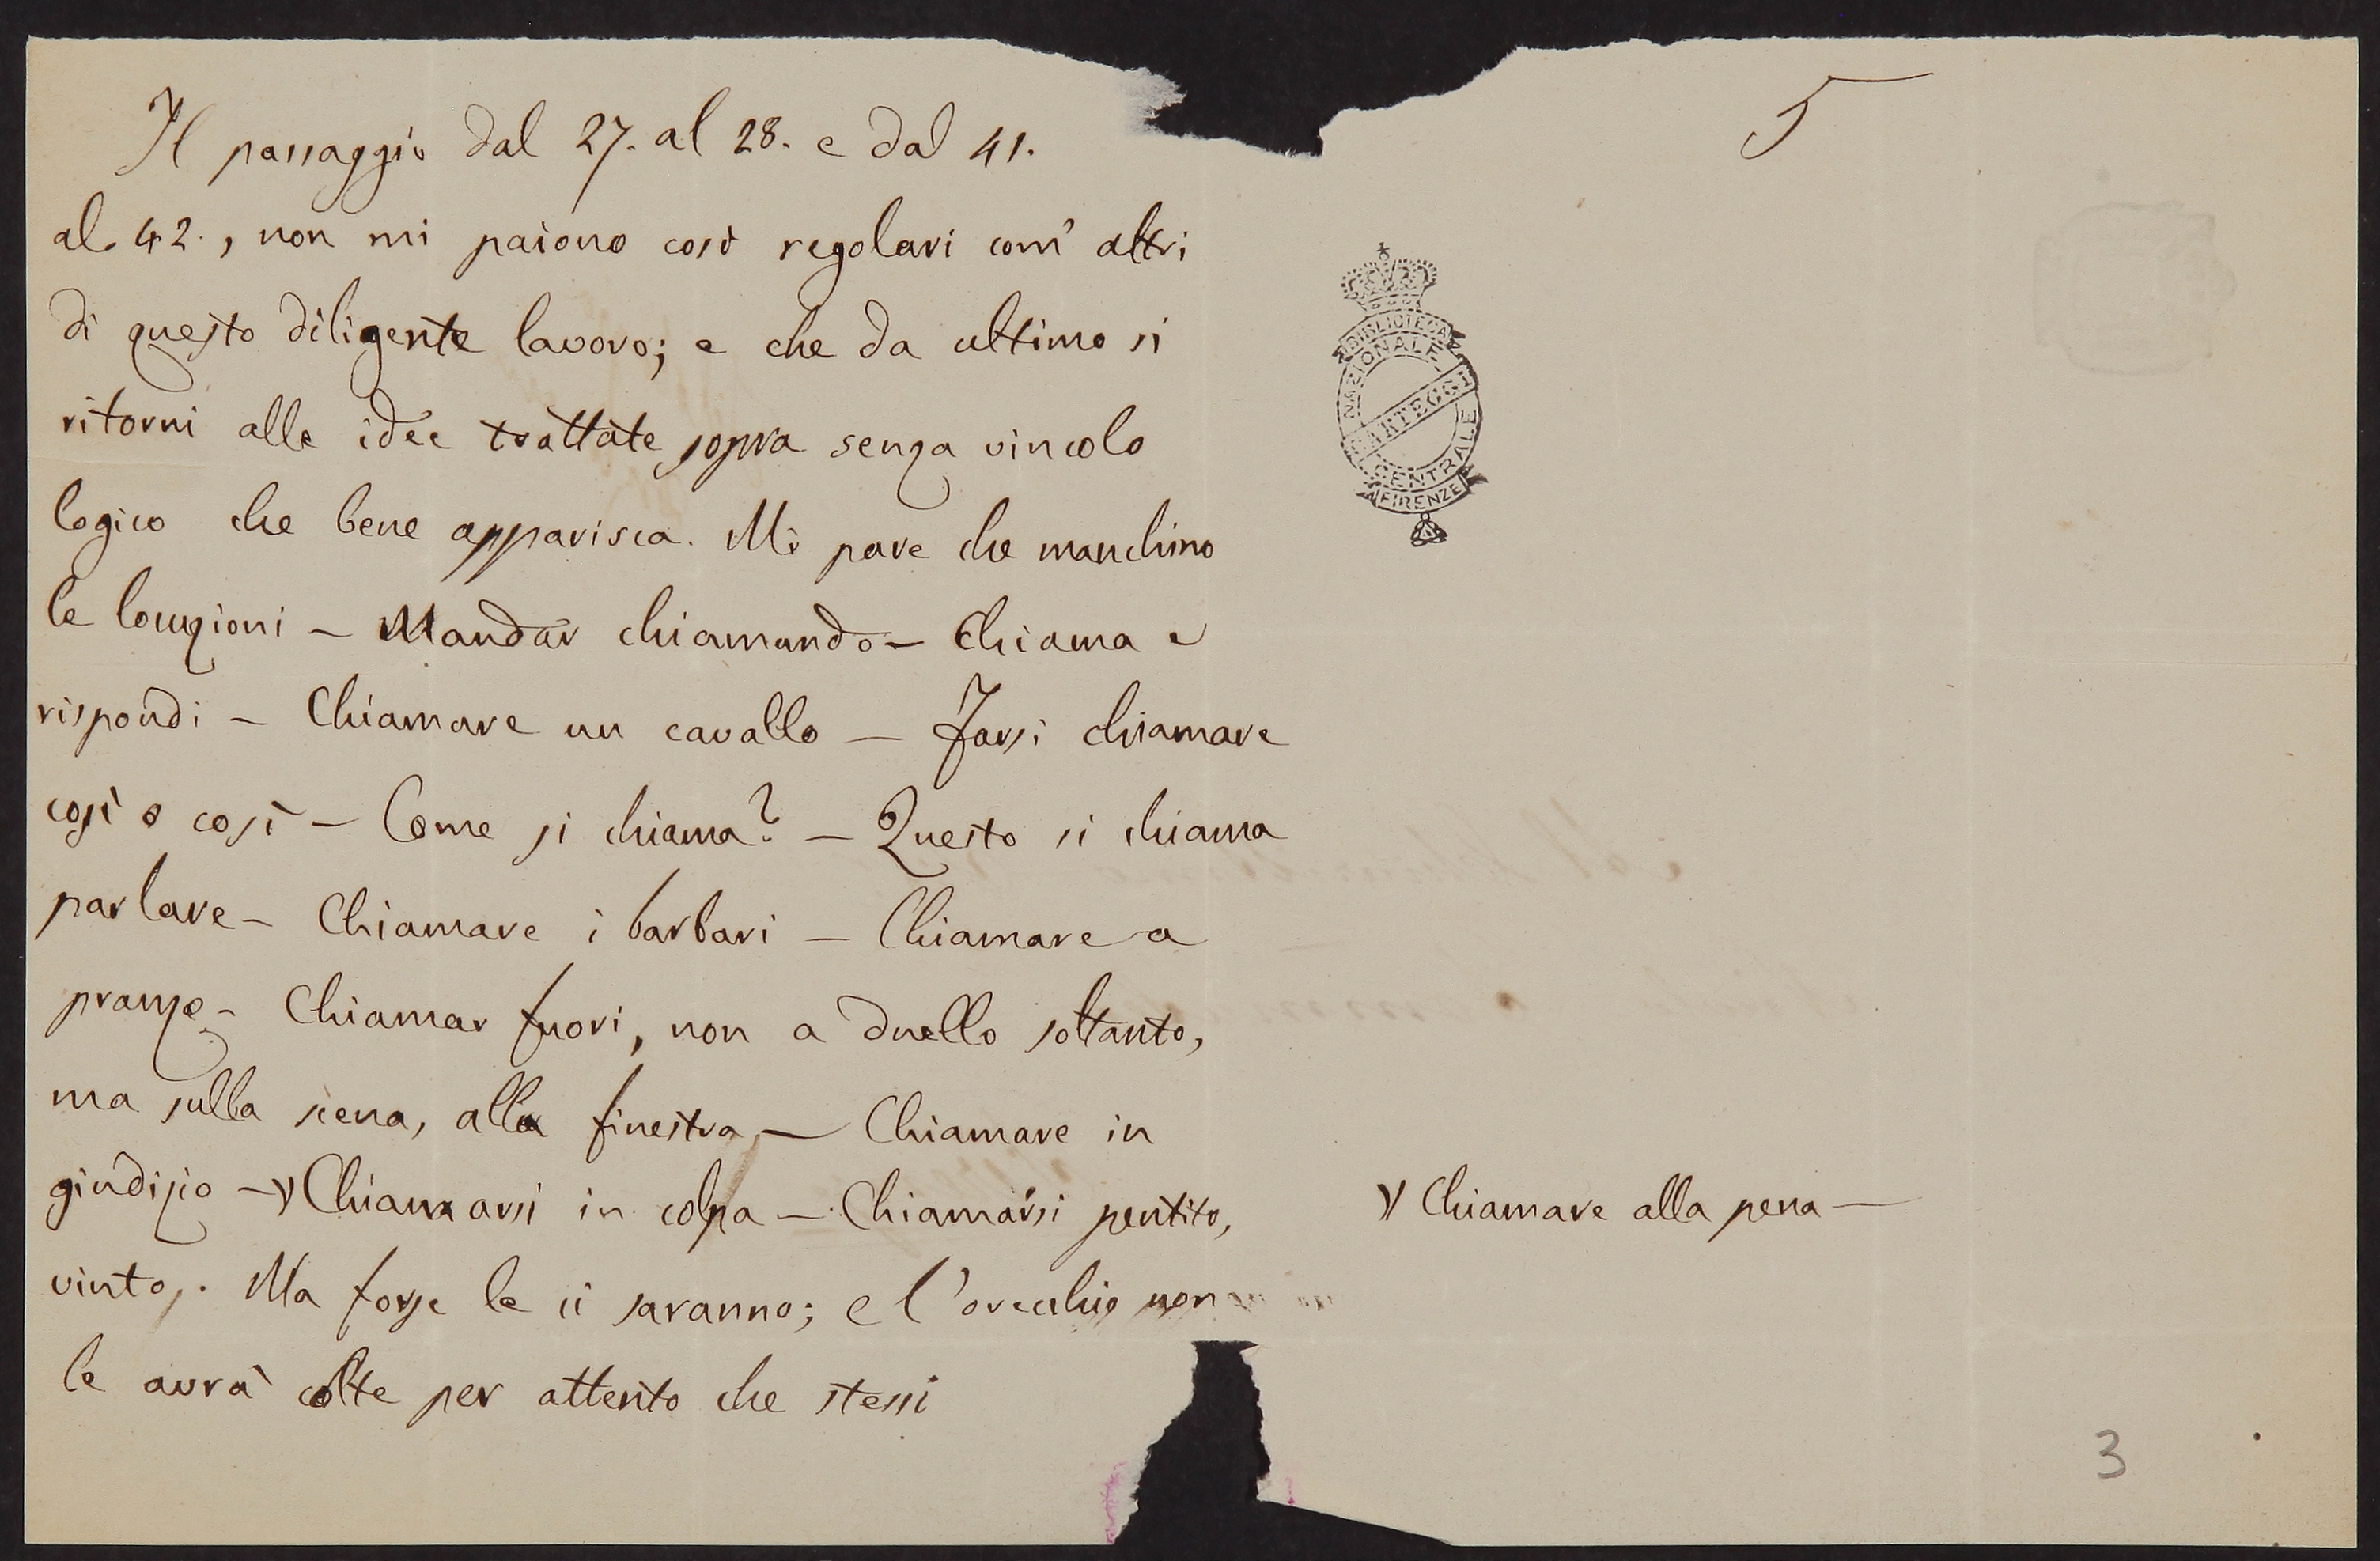 Il passaggio dal 27. al 28. e dal 41.
al 42., non mi paiono così regolari com' altri
di questo diligente lavoro; e che da ultimo si
ritorni alle idee trattate sopra senza vincolo
logico che bene apparisca. Mi pare che manchino
le locuzioni - Mandar chiamando - Chiama e
rispondi - Chiamare un cavallo - Farsi chiamare
così o così - Come si chiama? - Questo si chiama
parlare - Chiamare i barbari - Chiamare a
pranzo - Chiamar fuori, non a duello soltanto,
ma sulla scena, alla finestra, - Chiamare in
giudizio - Chiamarsi in colpa - Chiamarsi pentito,
vinto,. Ma forse le ci saranno; e l'orecchio non
le avrà colte per attento che stessi
5
BIBLIOTECA
NAZIONALE
CARTEGGI
CENTRALE
FIRENZE
Chiamare alla pena -
3